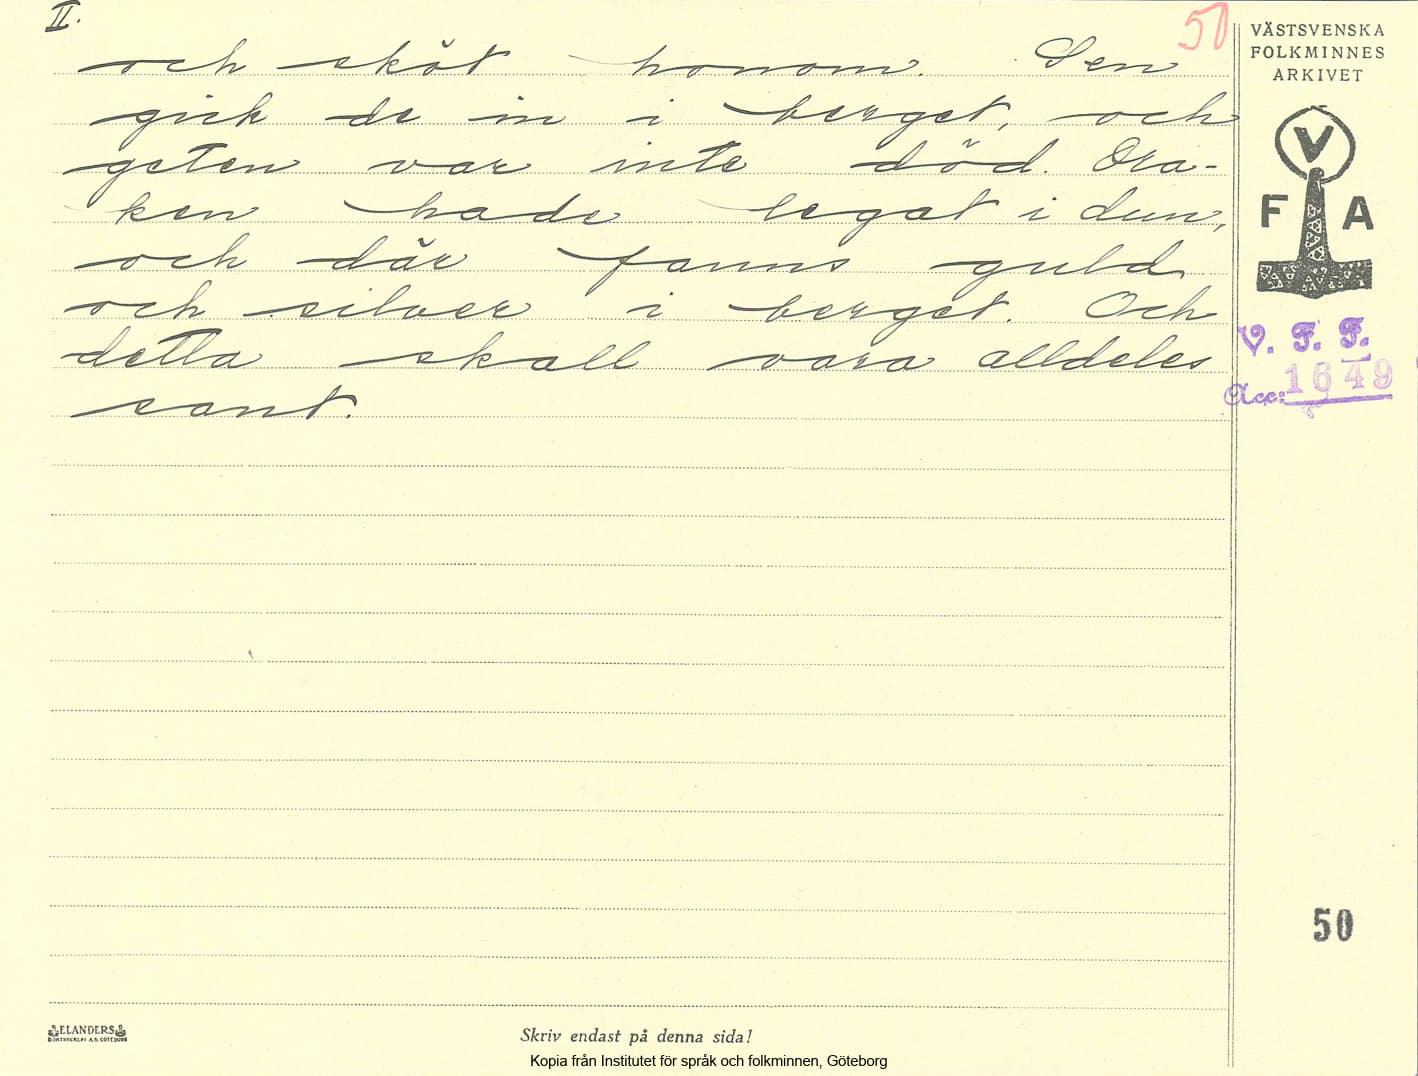 II.
50
och sköt honom. Sen
gick de in i berget, och
geten var inte död. Dra-
ken hade legat i dun,
och där fanns guld
och silver i berget. Och
detta skall vara alldeles
sant.
VÄSTSVENSKA
FOLKMINNES
ARKIVET
V
F A
V. F. F.
Acc: 1649
50
ELANDERS
BOKTRYCKERI A.B. GÖTEBORG
Skriv endast på denna sida!
Kopia från Institutet för språk och folkminnen, Göteborg